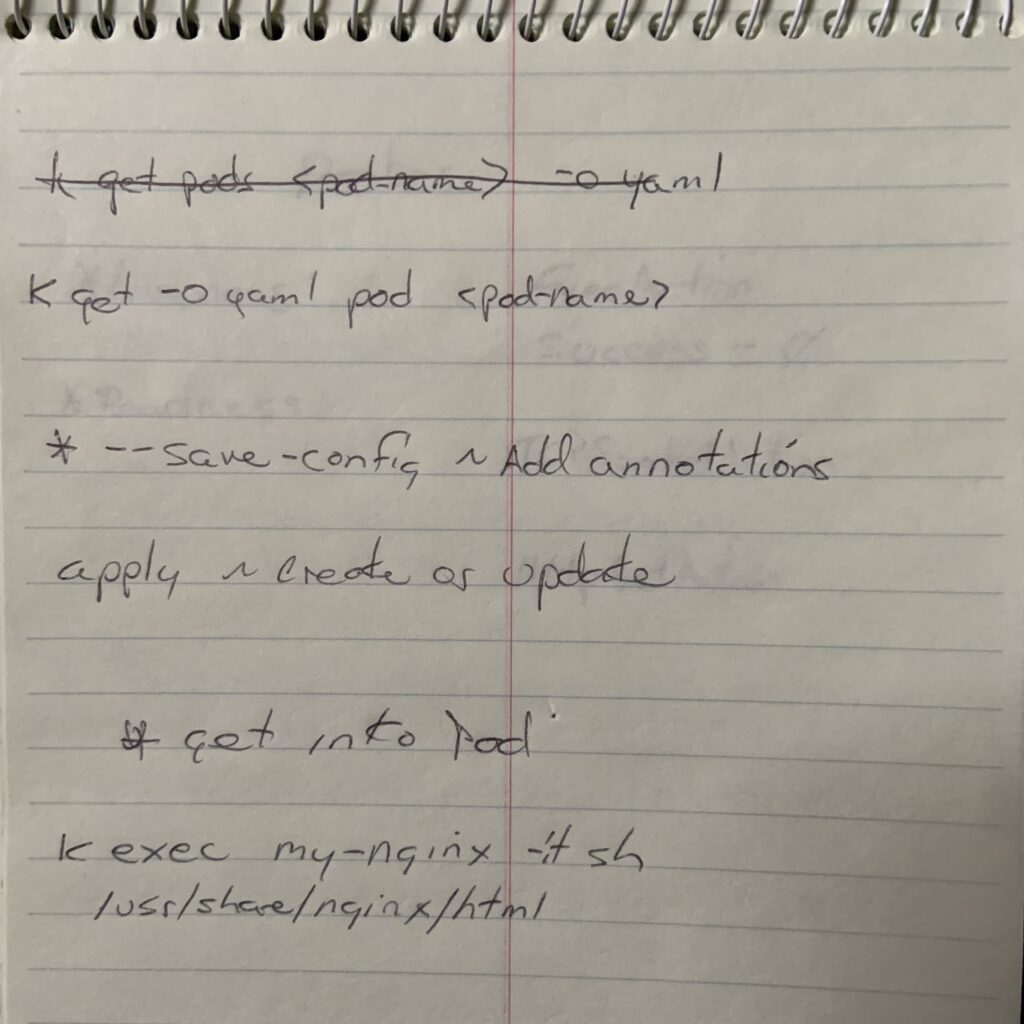 k get pods <pod-name> -o yaml
k get -o yaml pod <pod-name>
* --save-config ~ Add annotations
apply ~ create or update
* get into Pod
k exec my-nginx -it sh
/usr/share/nginx/html